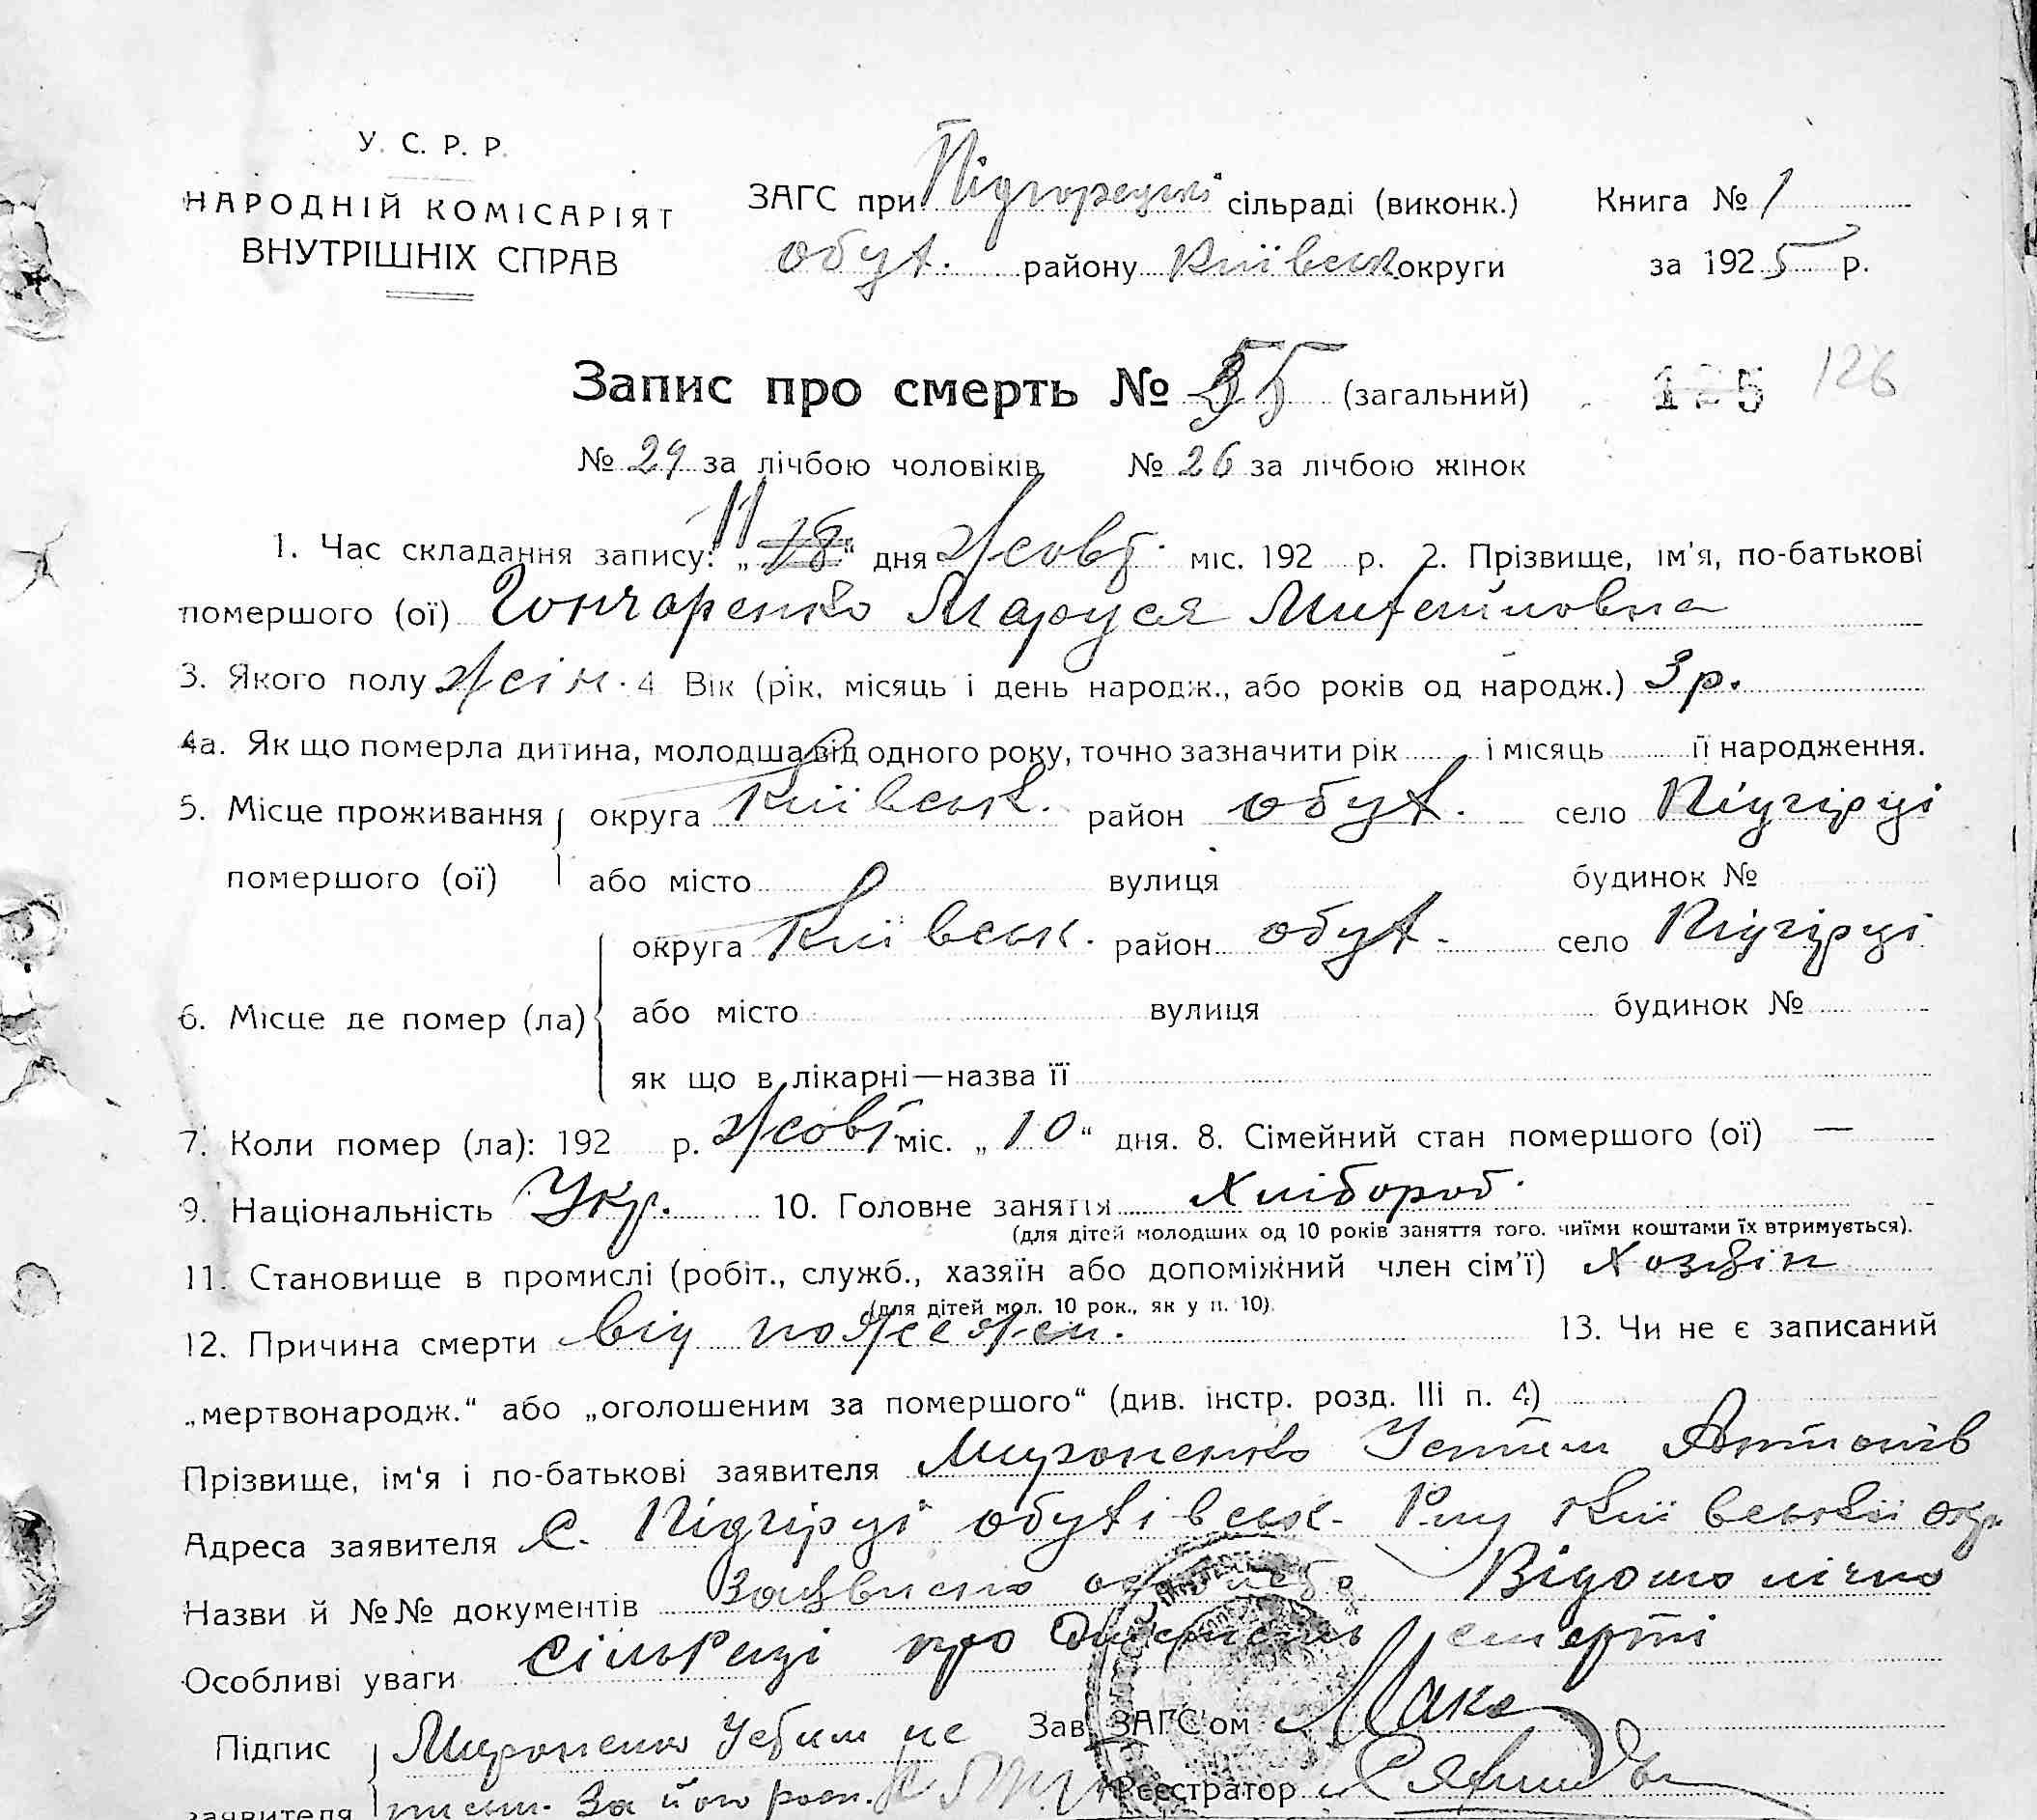 У. С. Р. Р.
НАРОДНІЙ КОМІСАРІЯТ
ВНУТРІШНІХ СПРАВ
ЗАГС при Підгорецькі сільраді (виконк.)
обух. району Київськ округи
Книга № 1
за 1925 р.
Запис про смерть № 55 (загальний)
125 126
№ 29 за лічбою чоловіків № 26 за лічбою жінок
1. Час складання запису: „18“ 11 дня Жовт. міс. 192 р. 2. Прізвище, ім'я, по-батькові
помершого (ої) Гончаренко Маруся Михайловна
3. Якого полу жін. 4 Вік (рік, місяць і день народж., або років од народж.) 3 р.
4а. Як що померла дитина, молодша від одного року, точно зазначити рік і місяць її народження.
5. Місце проживання округа Київськ. район обух. село Підгірці
помершого (ої) або місто вулиця будинок №
округа Київськ. район обух. село Підгірці
6. Місце де помер (ла) або місто вулиця будинок №
як що в лікарні—назва її
7. Коли помер (ла): 192 р. Жовт міс. „10“ дня. 8. Сімейний стан помершого (ої) —
9. Національність Укр. 10. Головне заняття Хлібороб.
(для дітей молодших од 10 років заняття того, чиїми коштами їх втримується).
11. Становище в промислі (робіт., служб., хазяїн або допоміжний член сім'ї) Хозяїн
(для дітей мол. 10 рок., як у п. 10).
12. Причина смерти від пожежи. 13. Чи не є записаний
„мертвонародж.“ або „оголошеним за помершого“ (див. інстр. розд. III п. 4)
Прізвище, ім'я і по-батькові заявителя Мироненко Устим Антонів
Адреса заявителя С. Підгірці обухівськ. Р-ну Київської окр.
Назви й №№ документів Заявлено Відомо лічно
Особливі уваги сільраді про смерті
Підпис Мироненко Устим не Зав. ЗАГС'ом
заявителя письм. За його росп. Реєстратор